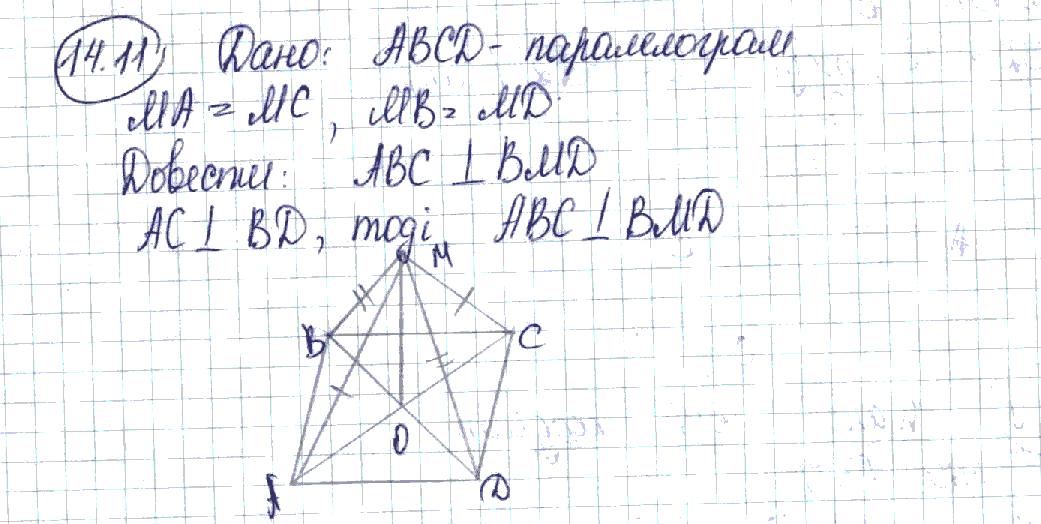 14.11
Дано: ABCD - паралелограм
MA = MC, MB = MD.
Довести: ABC ⊥ BMD
AC ⊥ BD, тоді ABC ⊥ BMD
M
B
C
O
A
D